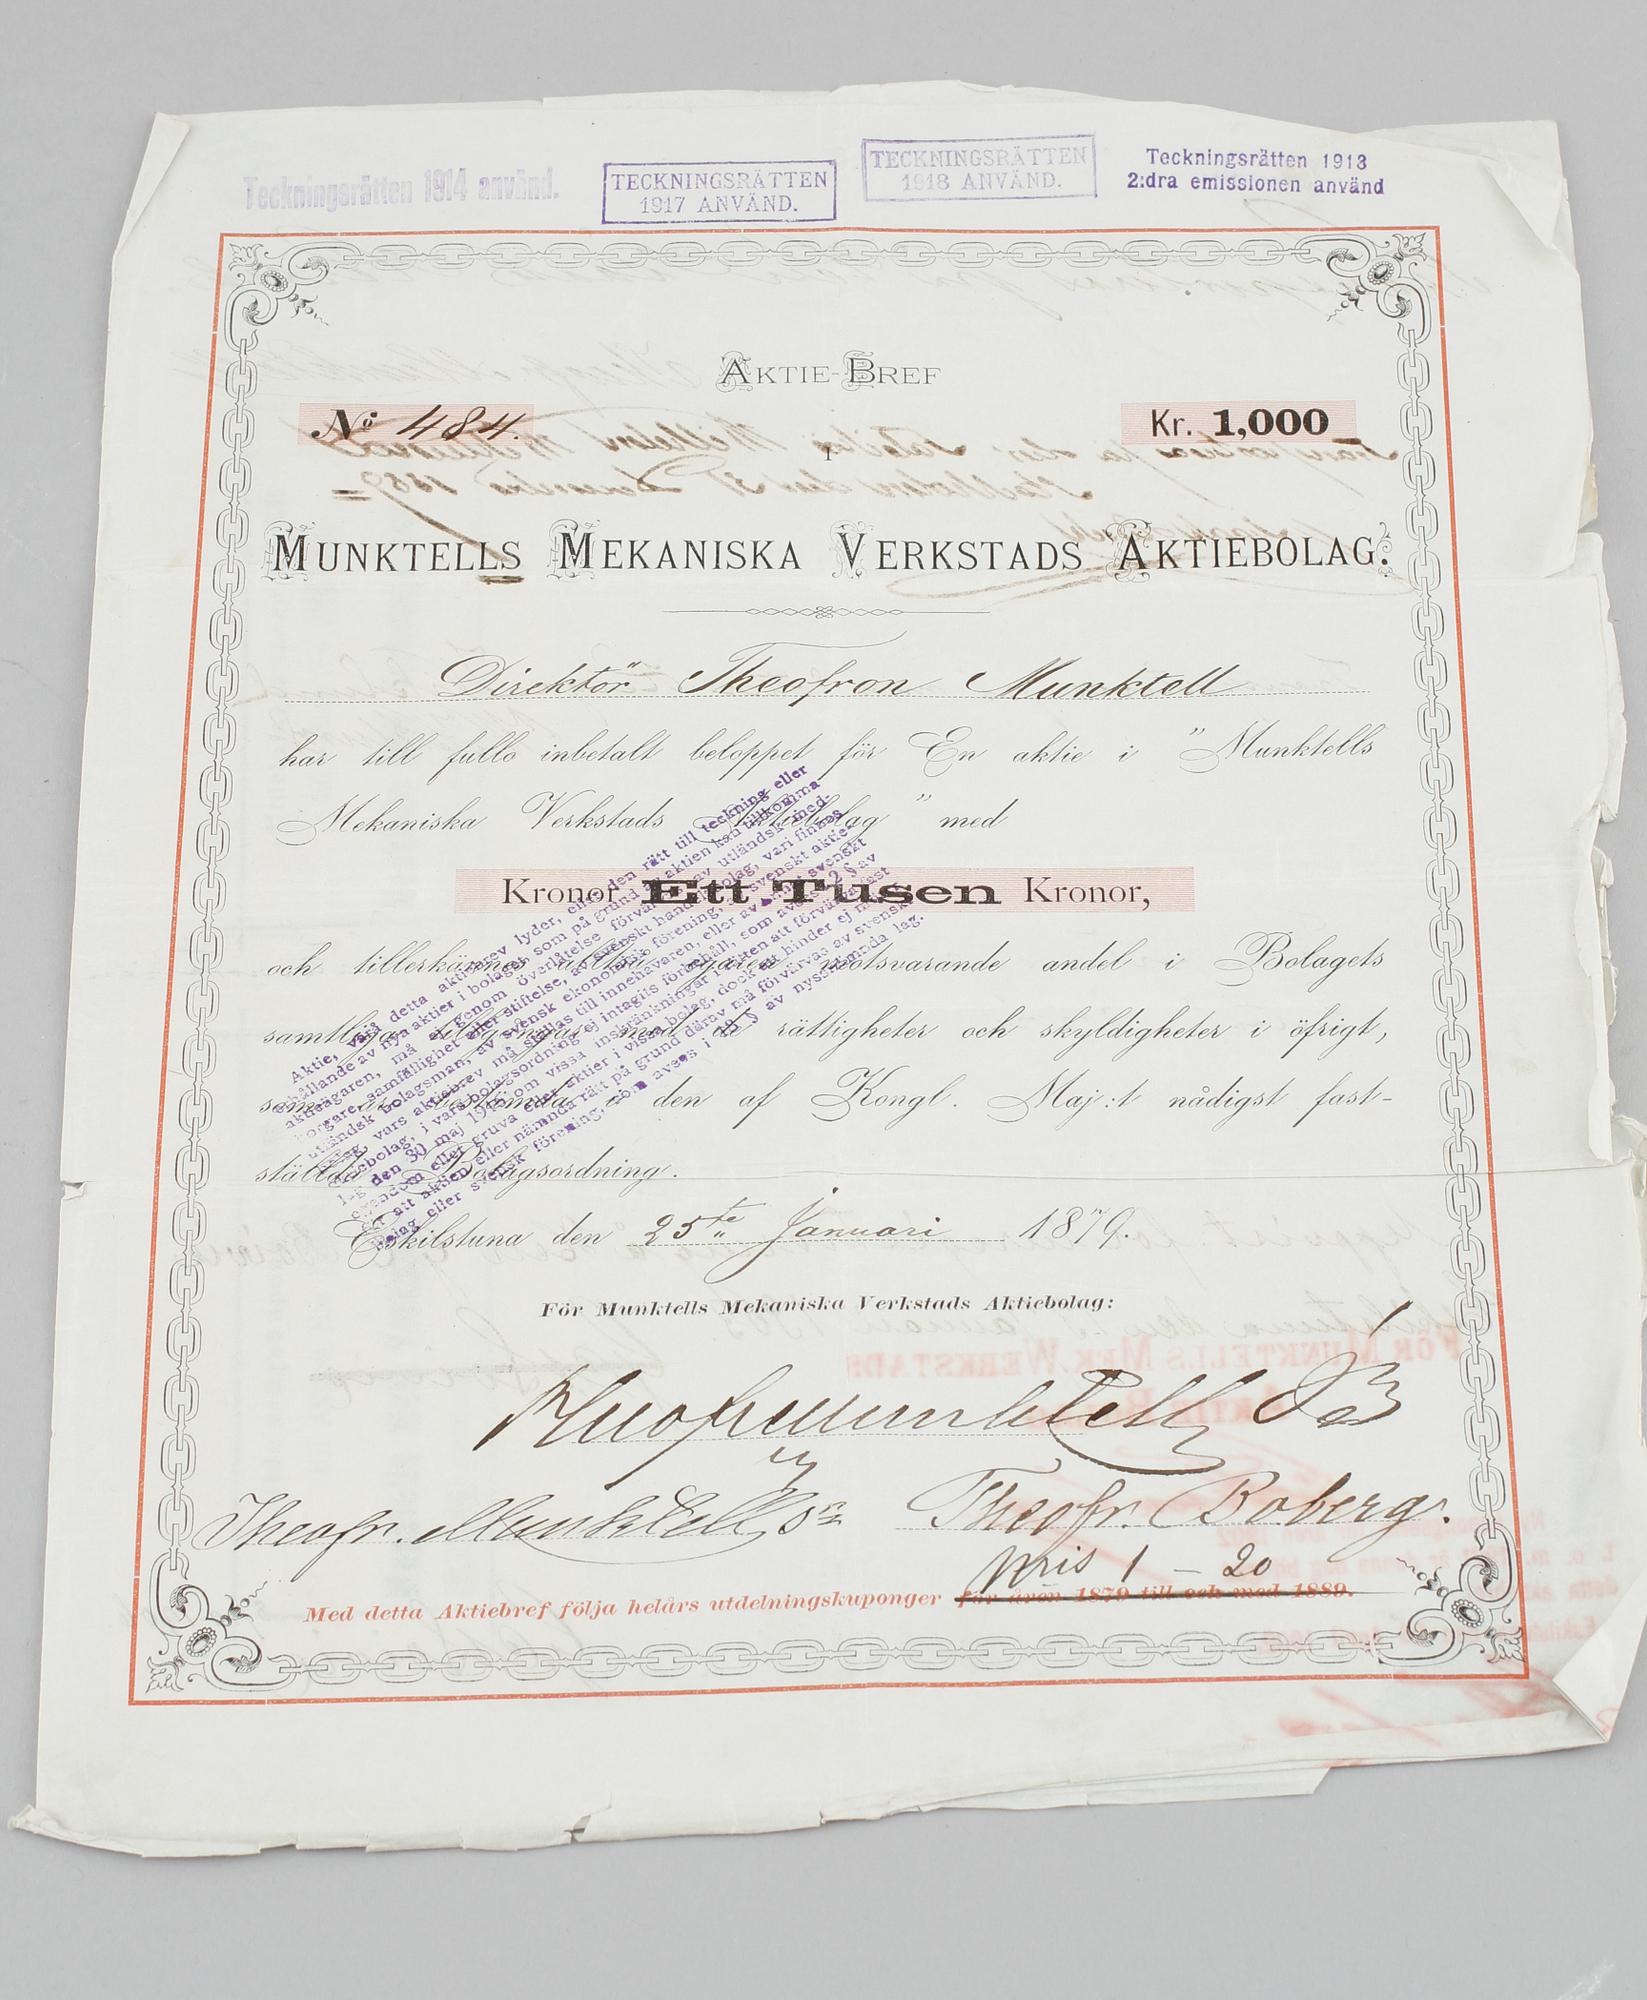 Teckningsrätten 1914 använd.
TECKNINGSRÄTTEN
1917 ANVÄND.
TECKNINGSRÄTTEN
1918 ANVÄND.
Teckningsrätten 1918
2:dra emissionen använd
AKTIE-BREF
No 484.
Kr. 1,000
i
MUNKTELLS MEKANISKA VERKSTADS AKTIEBOLAG.
Direktör Theofron Munktell
har till fullo inbetalt beloppet för En aktie i "Munktells
Mekaniska Verkstads Aktiebolag" med
Kronor Ett Tusen Kronor,
och tillerkännes alltså egaren motsvarande andel i Bolagets
samtliga tillgångar med de rättigheter och skyldigheter i öfrigt,
som äro bestämda i den af Kongl. Maj:t nådigst fast-
stälda Bolagsordning.
Aktie, varå detta aktiebrev lyder, eller den rätt till teckning eller
erhållande av nya aktier i bolaget, som på grund av aktien kan tillkomma
aktieägaren, må ej genom överlåtelse förvärvas av utländsk med-
borgare, samfällighet eller stiftelse, av svenskt handelsbolag, vari finnes
utländsk bolagsman, av svensk ekonomisk förening, av svenskt aktie-
bolag, vars aktiebrev må ställas till innehavaren, eller av annat svenskt
aktiebolag, i vars bolagsordning ej intagits förbehåll, som avses i 2 § av
lag den 30 maj 1916 om vissa inskränkningar i rätten att förvärva fast
egendom eller gruva eller aktier i vissa bolag, dock att hinder ej möter
för att aktien eller nämnda rätt på grund därav må förvärvas av svenskt
bolag eller svensk förening, som avses i 18 § av nysstnämnda lag.
Eskilstuna den 25te Januari 1879.
För Munktells Mekaniska Verkstads Aktiebolag:
Theofr. Munktell Theofr. Boberg.
pris 1 - 20
Med detta Aktiebref följa helårs utdelningskuponger för åren 1879 till och med 1889.